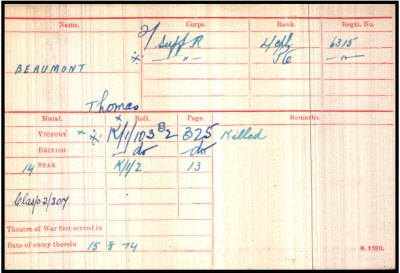 Name. Corps. Rank. Regtl. No.
2/ Suff R L/Cpl 6315
BEAUMONT × — " — — " —
Thomas
Medal. Roll. Page. Remarks.
VICTORY K/1/103 B2 325 Killed
BRITISH — do — do
14 STAR K/1/2 13
Clasp 2/307
Theatre of War first served in
Date of entry therein 15 8 14
K. 1380.